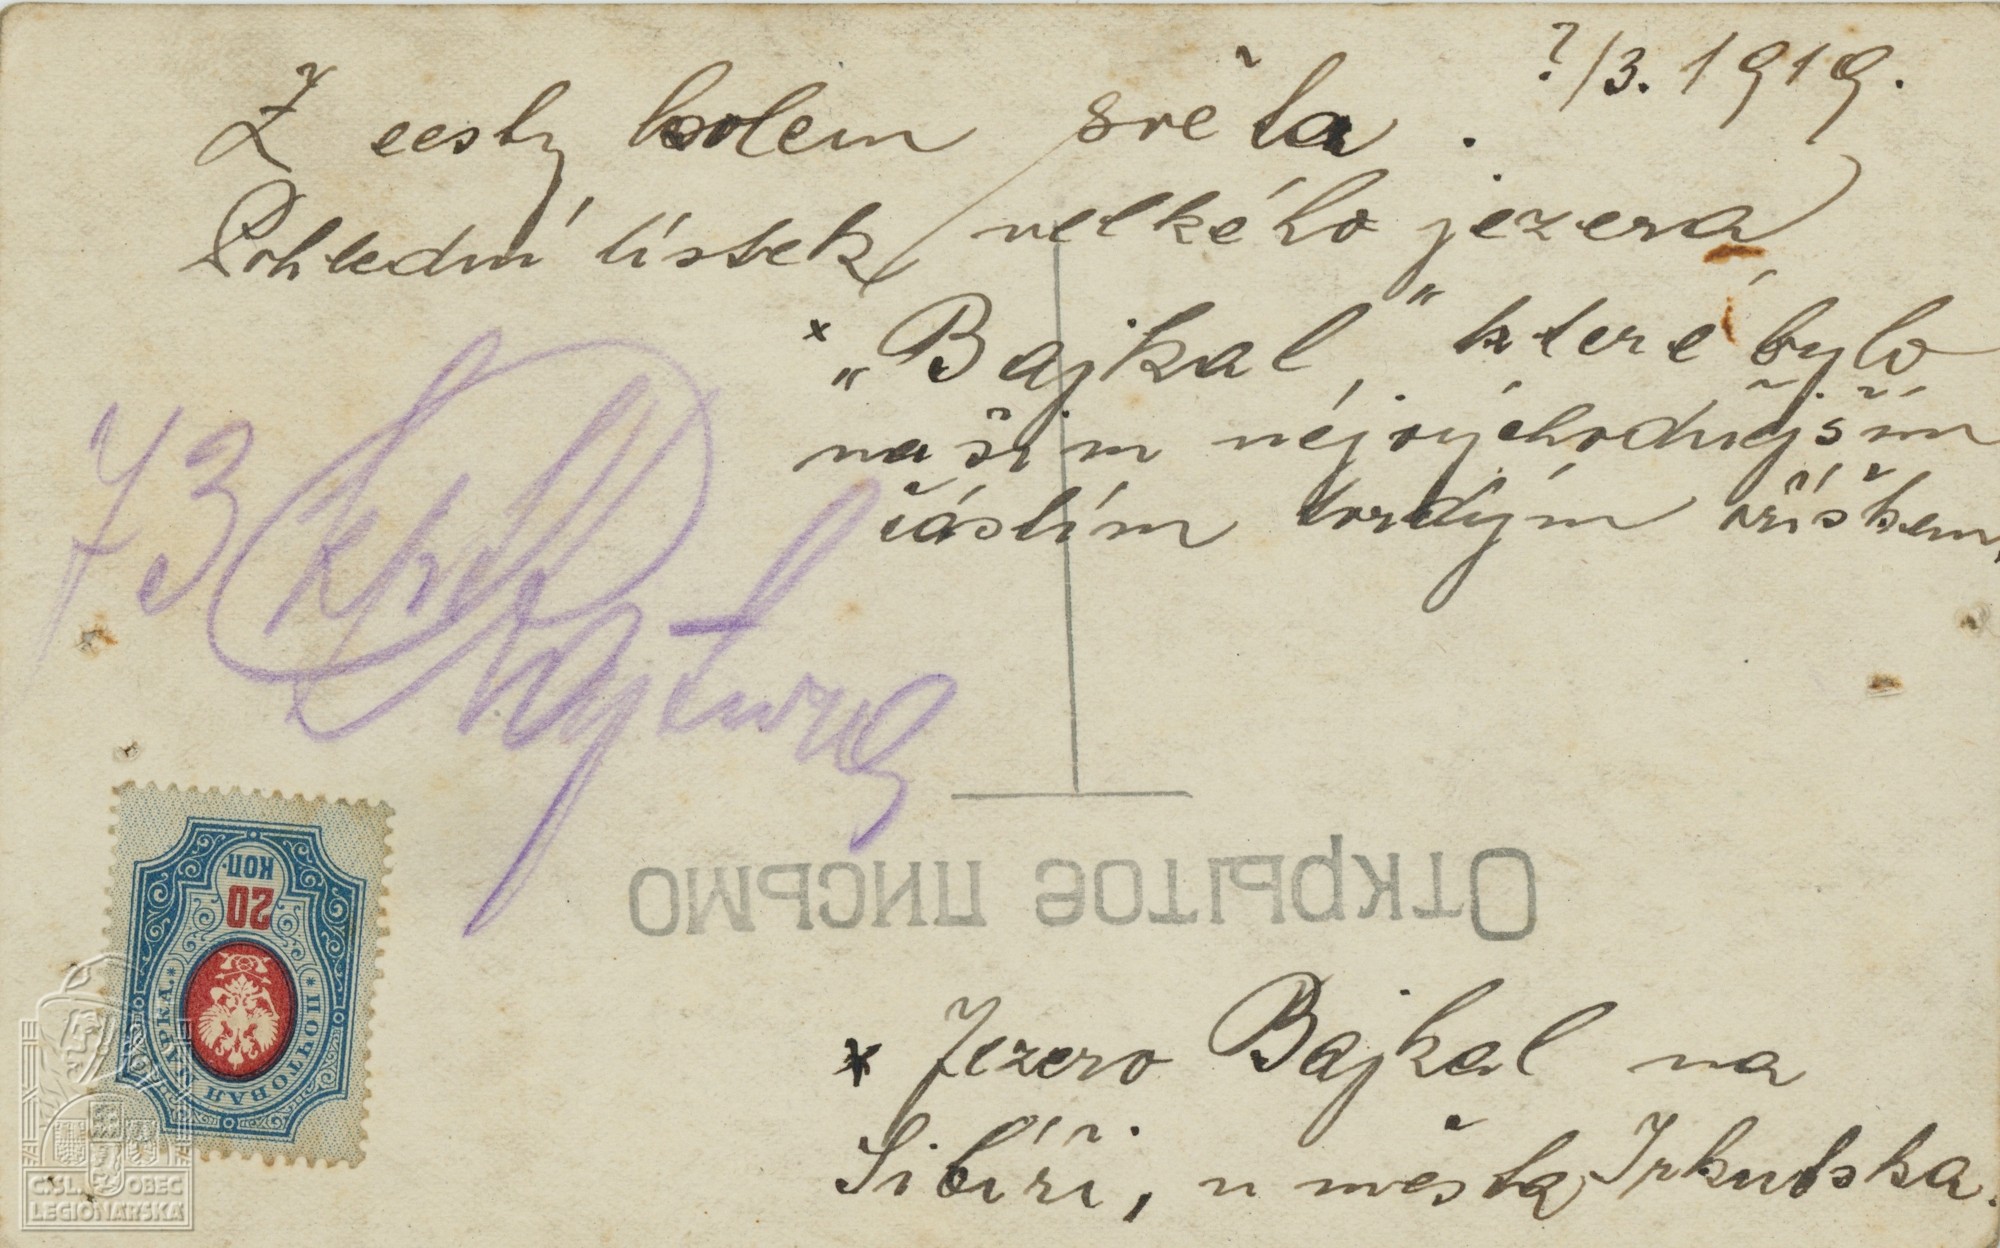 ?/3. 1919.
Z cesty kolem světa.
Pohlední lístek velkého jezera
* „Bajkal“ které bylo
našim nejvýchodnějším
částím tvrdým oříškem,
73
ОТКРЫТОЕ ПИСЬМО
20
КОП.
ПОЧТОВАЯ МАРКА.
* Jezero Bajkal na
Sibíři, u města Irkutska.
Č.SL. OBEC
LEGIONÁŘSKÁ